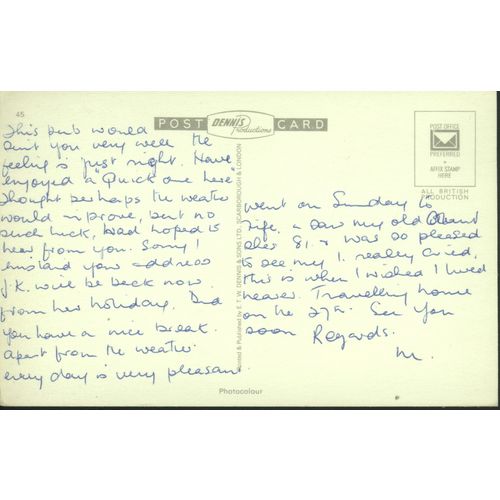 45
POST DENNIS Productions CARD
POST OFFICE
PREFERRED
AFFIX STAMP
HERE
ALL BRITISH
PRODUCTION
This pub would
suit you very well the
feeling is just right. Have
enjoyed a "Quick one here"
Thought perhaps the weather
would improve, but no
such luck, had hoped to
hear from you. Sorry I
mislaid your address
J.K. will be back now
from her holiday. Did
you have a nice break.
Apart from the weather
every day is very pleasant
Printed & Published by E. T. W. DENNIS & SONS LTD., SCARBOROUGH & LONDON
went on Sunday to
Fife, & saw my old Aunt
shes 81. & was so pleased
to see my I really cried,
this is when I wished I lived
nearer. Travelling home
on the 27th. See you
soon Regards.
M.
Photocolour